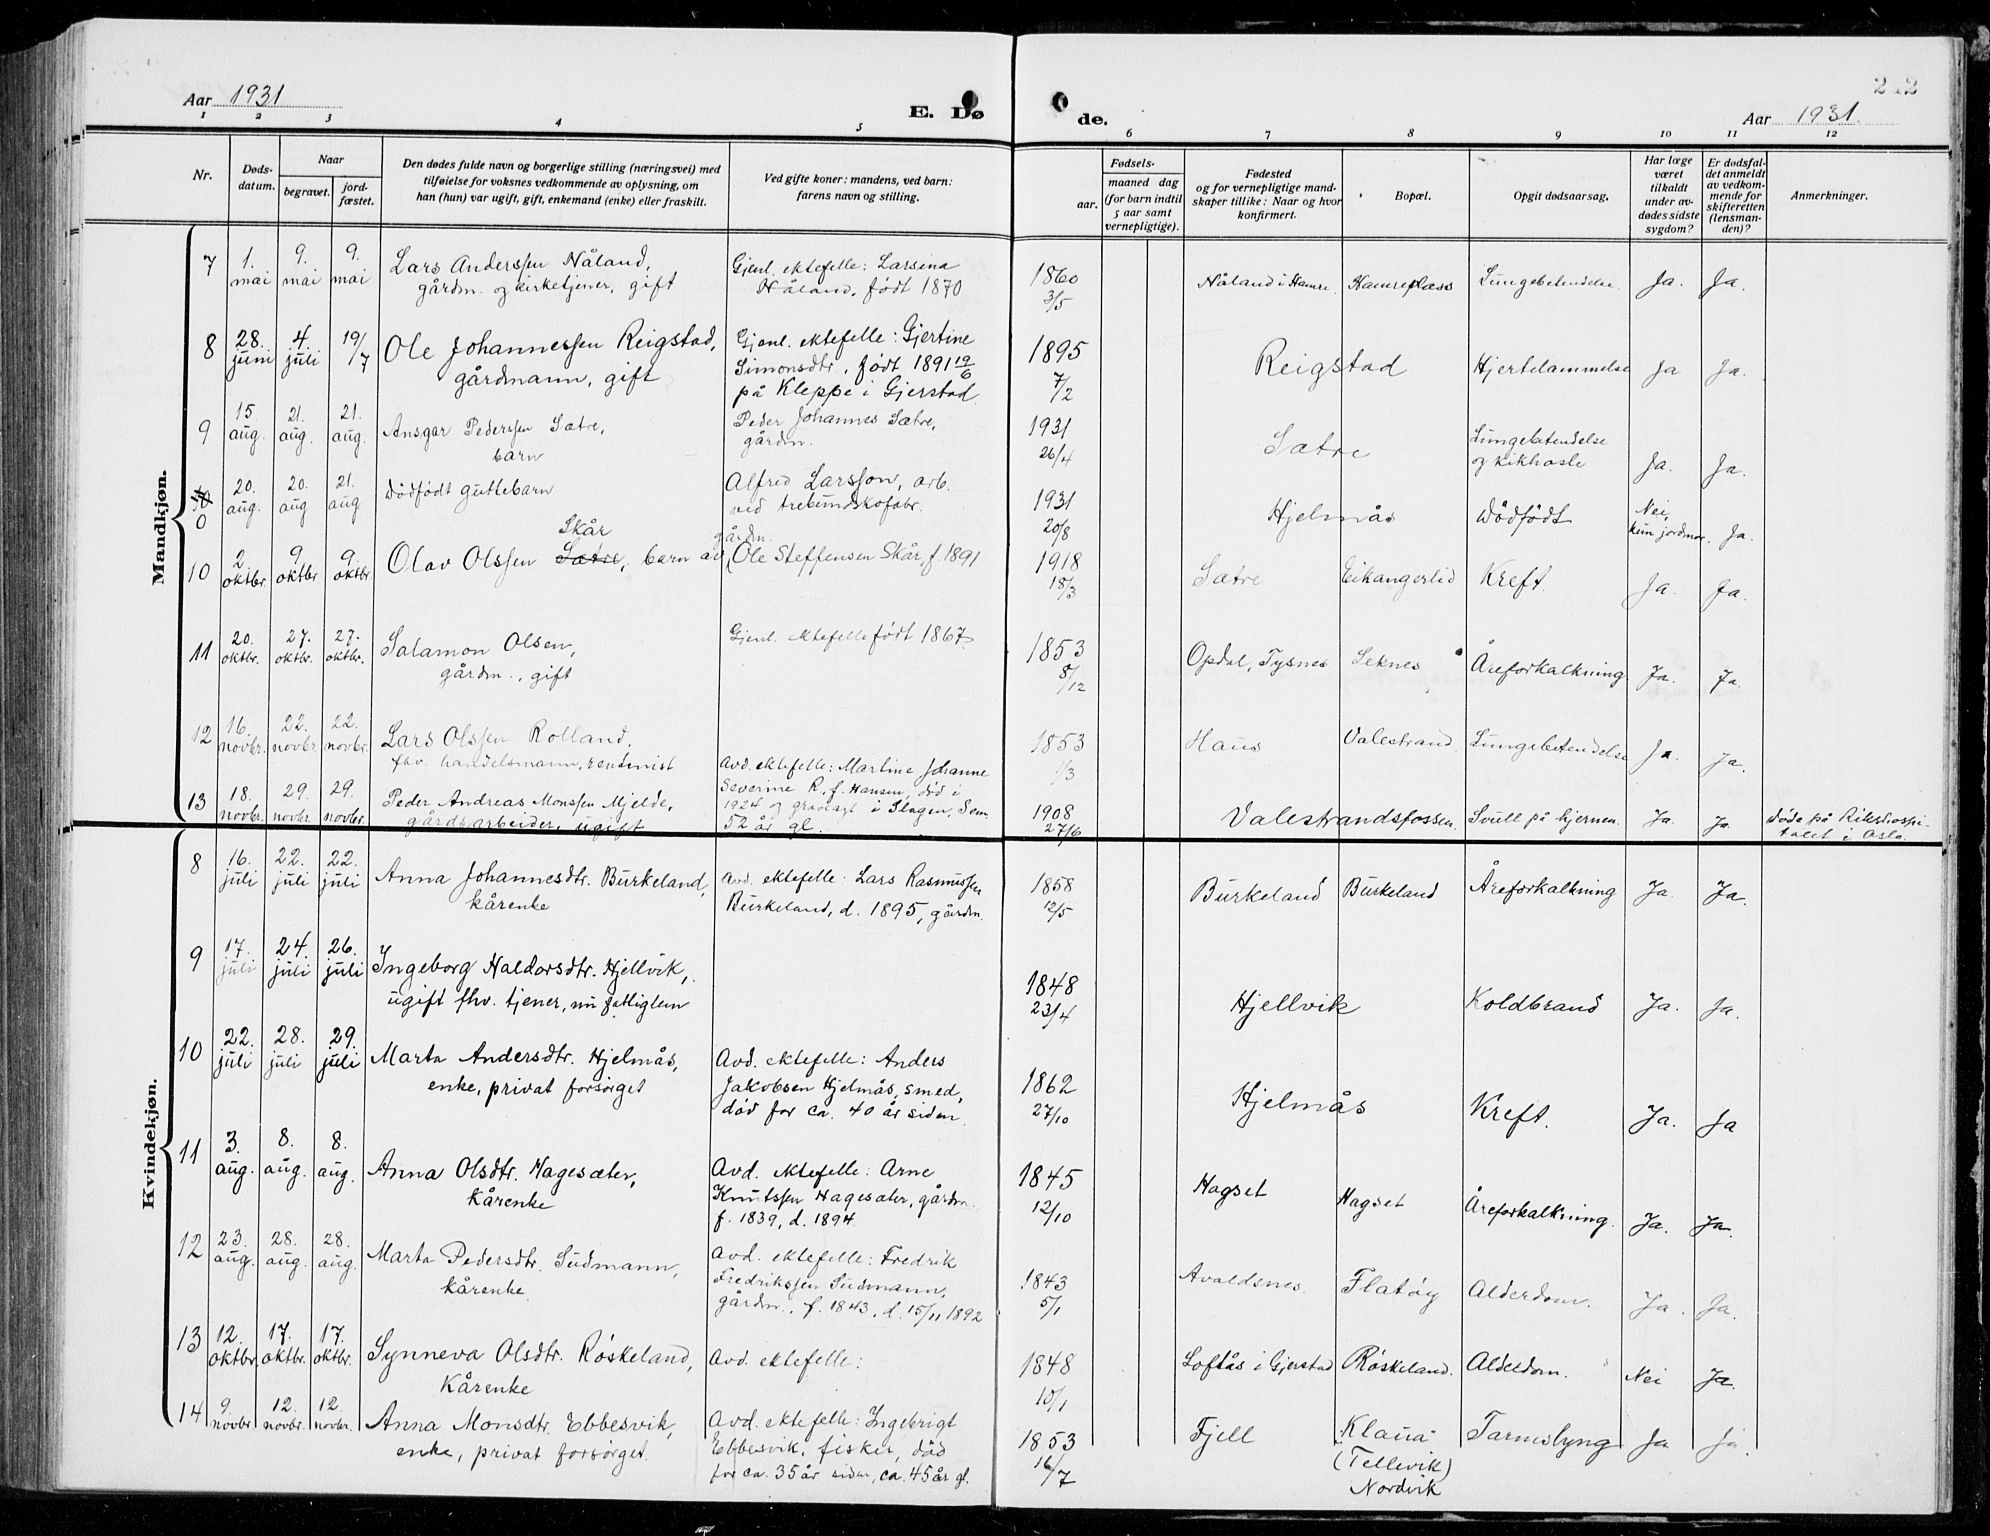 242
Aar 1931
E. Dø
de.
Aar 1931.
1 2 3 4 5 6 7 8 9 10 11 12
Nr.
Døds-
datum.
Naar
begravet.
jord-
fæstet.
Den dødes fulde navn og borgerlige stilling (næringsvei) med
tilføielse for voksnes vedkommende av oplysning, om
han (hun) var ugift, gift, enkemand (enke) eller fraskilt.
Ved gifte koner: mandens, ved barn:
farens navn og stilling.
Fødsels-
aar.
maaned dag
(for barn indtil
5 aar samt
vernepligtige).
Fødested
og for vernepligtige mand-
skaper tillike: Naar og hvor
konfirmert.
Bopæl.
Opgit dødsaarsag.
Har læge
været
tilkaldt
under av-
dødes sidste
sygdom?
Er dødsfal-
det anmeldt
av vedkom-
mende for
skifteretten
(lensman-
den)?
Anmerkninger.
Mandkjøn.
7 1. mai 9. mai 9. mai Lars Anderssen Nåland, Gjenl. ektefelle: Larsina 1860 Nåland i Hamre. Hamreplass Lungebetendelse Ja. Ja.
gårdm. og kirketjener, gift Nåland, født 1870 3/5
8 28. juni 4. juli 19/7 Ole Johannessen Reigstad, Gjenl. ektefelle: Gjertine 1895 Reigstad Hjertelammelse Ja Ja.
gårdmann, gift Simonsdtr. født 1891 19/6 7/2
på Kleppe i Gjerstad
9 15 aug. 21. aug. 21. aug. Ansgar Pederssen Sætre, Peder Johannes Sætre, 1931 Sætre Lungebetendelse Ja. Ja.
barn gårdm. 26/4 og kikhoste
0 20. aug. 20. aug 21. aug. Dödfödt guttebarn Alfred Larsson, arb. 1931 Hjelmås Dödfödt Nei, Ja.
ved trebundskofabr. 20/8 kun jordmor.
Skår gårdm.
10 2 oktbr. 9 oktbr. 9. oktbr. Olav Olssen Sætre, barn av Ole Steffensen Skår, f. 1891 1918 Sætre Eikangerlid Kreft. Ja. Ja.
18/3
11 20. oktbr. 27. oktbr. 27. oktbr. Salamon Olsen, Gjenl. ektefelle født 1867 1853 Opdal, Tysnes Seknes Åreforkalkning Ja. Ja.
gårdm., gift 8/12
12 16. novbr. 22. novbr 22. novbr. Lars Olssen Rolland, 1853 Haus Valestrand. Lungebetendelse Ja. Ja.
fhv. handelsmann, rentenist Avd. ektefelle: Martine Johanne 1/3
Severine R. f. Hansen, död i
1924 og gravlagt i Slagen, Sem
52 år gl.
13 18. novbr. 29. novbr. 29. novbr. Peder Andreas Monssen Mjelde, 1908 Valestrandsfossen. Svull på hjernen. Ja. Ja. döde på Rikshospi-
gårdsarbeider, ugift 27/6 talet i Oslo.
Kvindekjøn.
8 16. juli 22. juli 22. juli Anna Johannesdtr. Burkeland, Avd. ektefelle: Lars Rasmussen 1858 Burkeland Burkeland Åreforkalkning Ja. Ja.
kårenke Burkeland, d. 1895, gårdm. 12/5
9 17. juli 24. juli 26. juli Ingeborg Haldorsdtr. Hjellvik, 1848 Hjellvik Koldbrand Ja. Ja.
ugift fhv. tjener, nu fattiglem 23/4
10 22. juli 28. juli 29. juli Marta Andersdtr. Hjelmås, Avd. ektefelle: Anders 1862 Hjelmås Kreft. Ja. Ja
enke, privat forsørget Jakobsen Hjelmås, smed, 27/10
död for ca. 40 år siden.
11 3. aug. 8. aug. 8. aug. Anna Olsdtr. Hagesæter, Avd. ektefelle: Arne 1845 Hagset Hagset Åreforkalkning. Ja. Ja.
Kårenke Knutssen Hagesæter, gårdm. 12/10
f. 1839, d. 1894.
12 23. aug. 28. aug. 28. aug. Marta Pedersdtr. Sudmann, Avd. ektefelle: Fredrik 1843 Avaldsnes. Flatöy Alderdom. Ja. Ja.
kårenke. Fredrikssen Sudmann, 5/1
gårdm., f. 1843, d. 15/11 1892
13 12. oktbr. 17. oktbr. 17. oktbr. Synneva Olsdtr. Röskeland, Avd. ektefelle: 1848 Loftås i Gjerstad Röskeland. Alderdom. Nei Ja.
Kårenke 10/1
14 9. novbr. 12. novbr. 12. novbr. Anna Monsdtr. Ebbesvik, Avd. ektefelle: Ingebrigt 1853 Fjell Klaua Tarmslyng Ja Ja.
enke, privat forsörget. Ebbesvik, fisker, död 16/7 (Tellevik)
for ca. 35 år siden, ca. 45 år gl. Nordvik